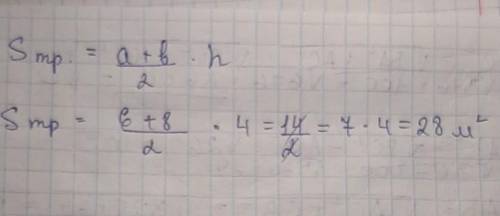 Sтр. = a + b / 2 · h
Sтр = 6 + 8 / 2 · 4 = 14 / 2 = 7 · 4 = 28 м²